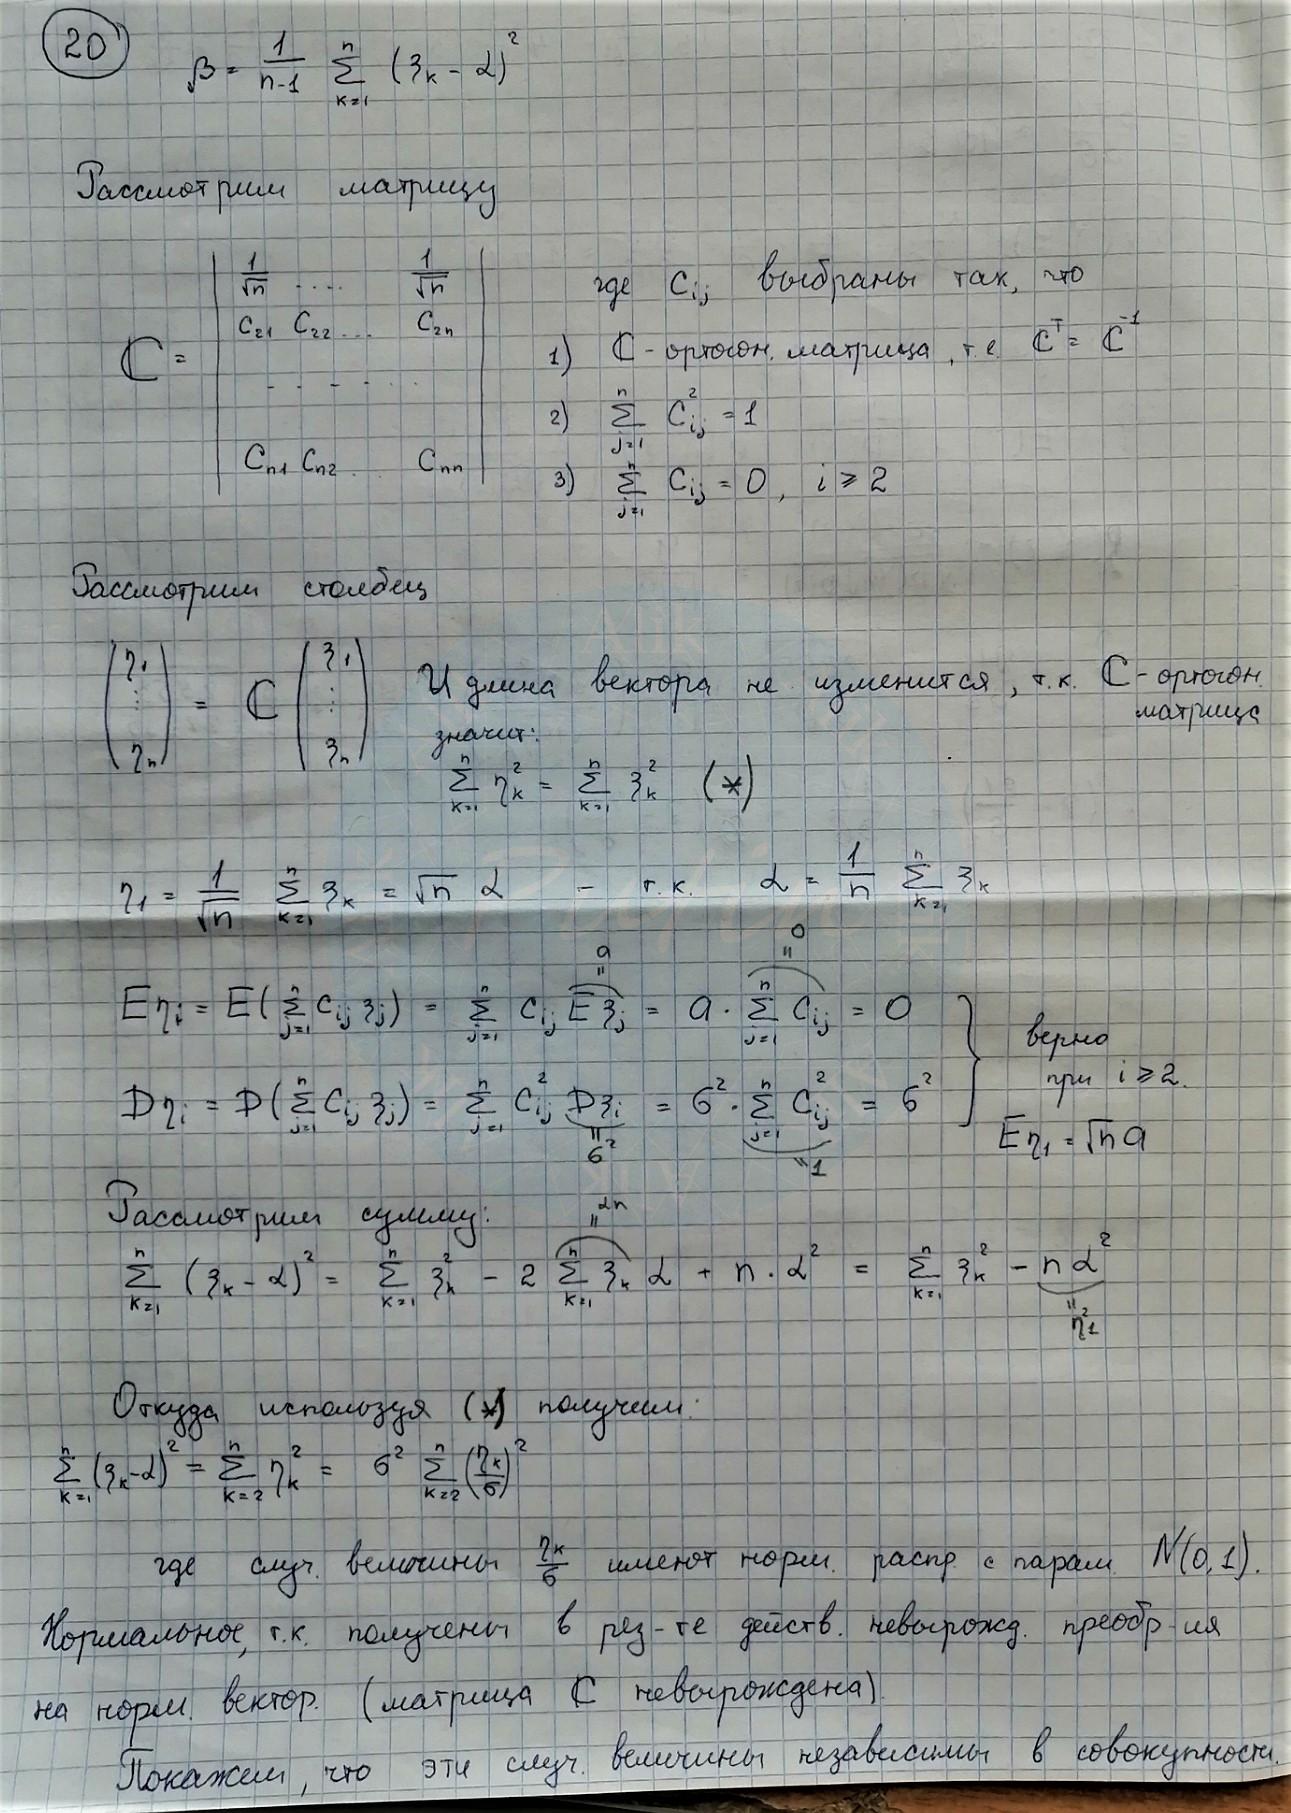 20
β = 1/(n-1) ∑_{k=1}^{n} (ξ_k - α)²
Рассмотрим матрицу
ℂ = | 1/√n .... 1/√n | где C_ij выбраны так, что
| C_21 C_22 ... C_2n | 1) ℂ - ортогон. матрица, т.е. ℂ^T = ℂ^{-1}
| - - - - - - | 2) ∑_{j=1}^{n} C_ij² = 1
| C_n1 C_n2 .. C_nn | 3) ∑_{j=1}^{n} C_ij = 0, i ≥ 2
Рассмотрим столбец
(η_1 ⋮ η_n) = ℂ (ξ_1 ⋮ ξ_n) И длина вектора не изменится, т.к. ℂ - ортогон.
матрица
значит:
∑_{k=1}^{n} η_k² = ∑_{k=1}^{n} ξ_k² (*)
η_1 = 1/√n ∑_{k=1}^{n} ξ_k = √n α - т.к. α = 1/n ∑_{k=1}^{n} ξ_k
a = 0 =
Eη_i = E(∑_{j=1}^{n} C_ij ξ_j) = ∑_{j=1}^{n} C_ij Eξ_j = a · ∑_{j=1}^{n} C_ij = 0 } верно
Dη_i = D(∑_{j=1}^{n} C_ij ξ_j) = ∑_{j=1}^{n} C_ij² Dξ_i = σ² · ∑_{j=1}^{n} C_ij² = σ² } при i ≥ 2.
= σ² = 1 Eη_1 = √n a
Рассмотрим сумму: = αn
∑_{k=1}^{n} (ξ_k - α)² = ∑_{k=1}^{n} ξ_k² - 2 ∑_{k=1}^{n} ξ_k α + n · α² = ∑_{k=1}^{n} ξ_k² - nα²
= η_1²
Откуда используя (*) получим:
∑_{k=1}^{n} (ξ_k - α)² = ∑_{k=2}^{n} η_k² = σ² ∑_{k=2}^{n} (η_k/σ)²
где случ. величины η_k/σ имеют норм. распр. с парам. N(0,1).
Нормальное, т.к. получены в рез-те действ. невырожд. преобр-ия
на норм. вектор. (матрица ℂ невырождена)
Покажем, что эти случ. величины независимы в совокупности.
Alik